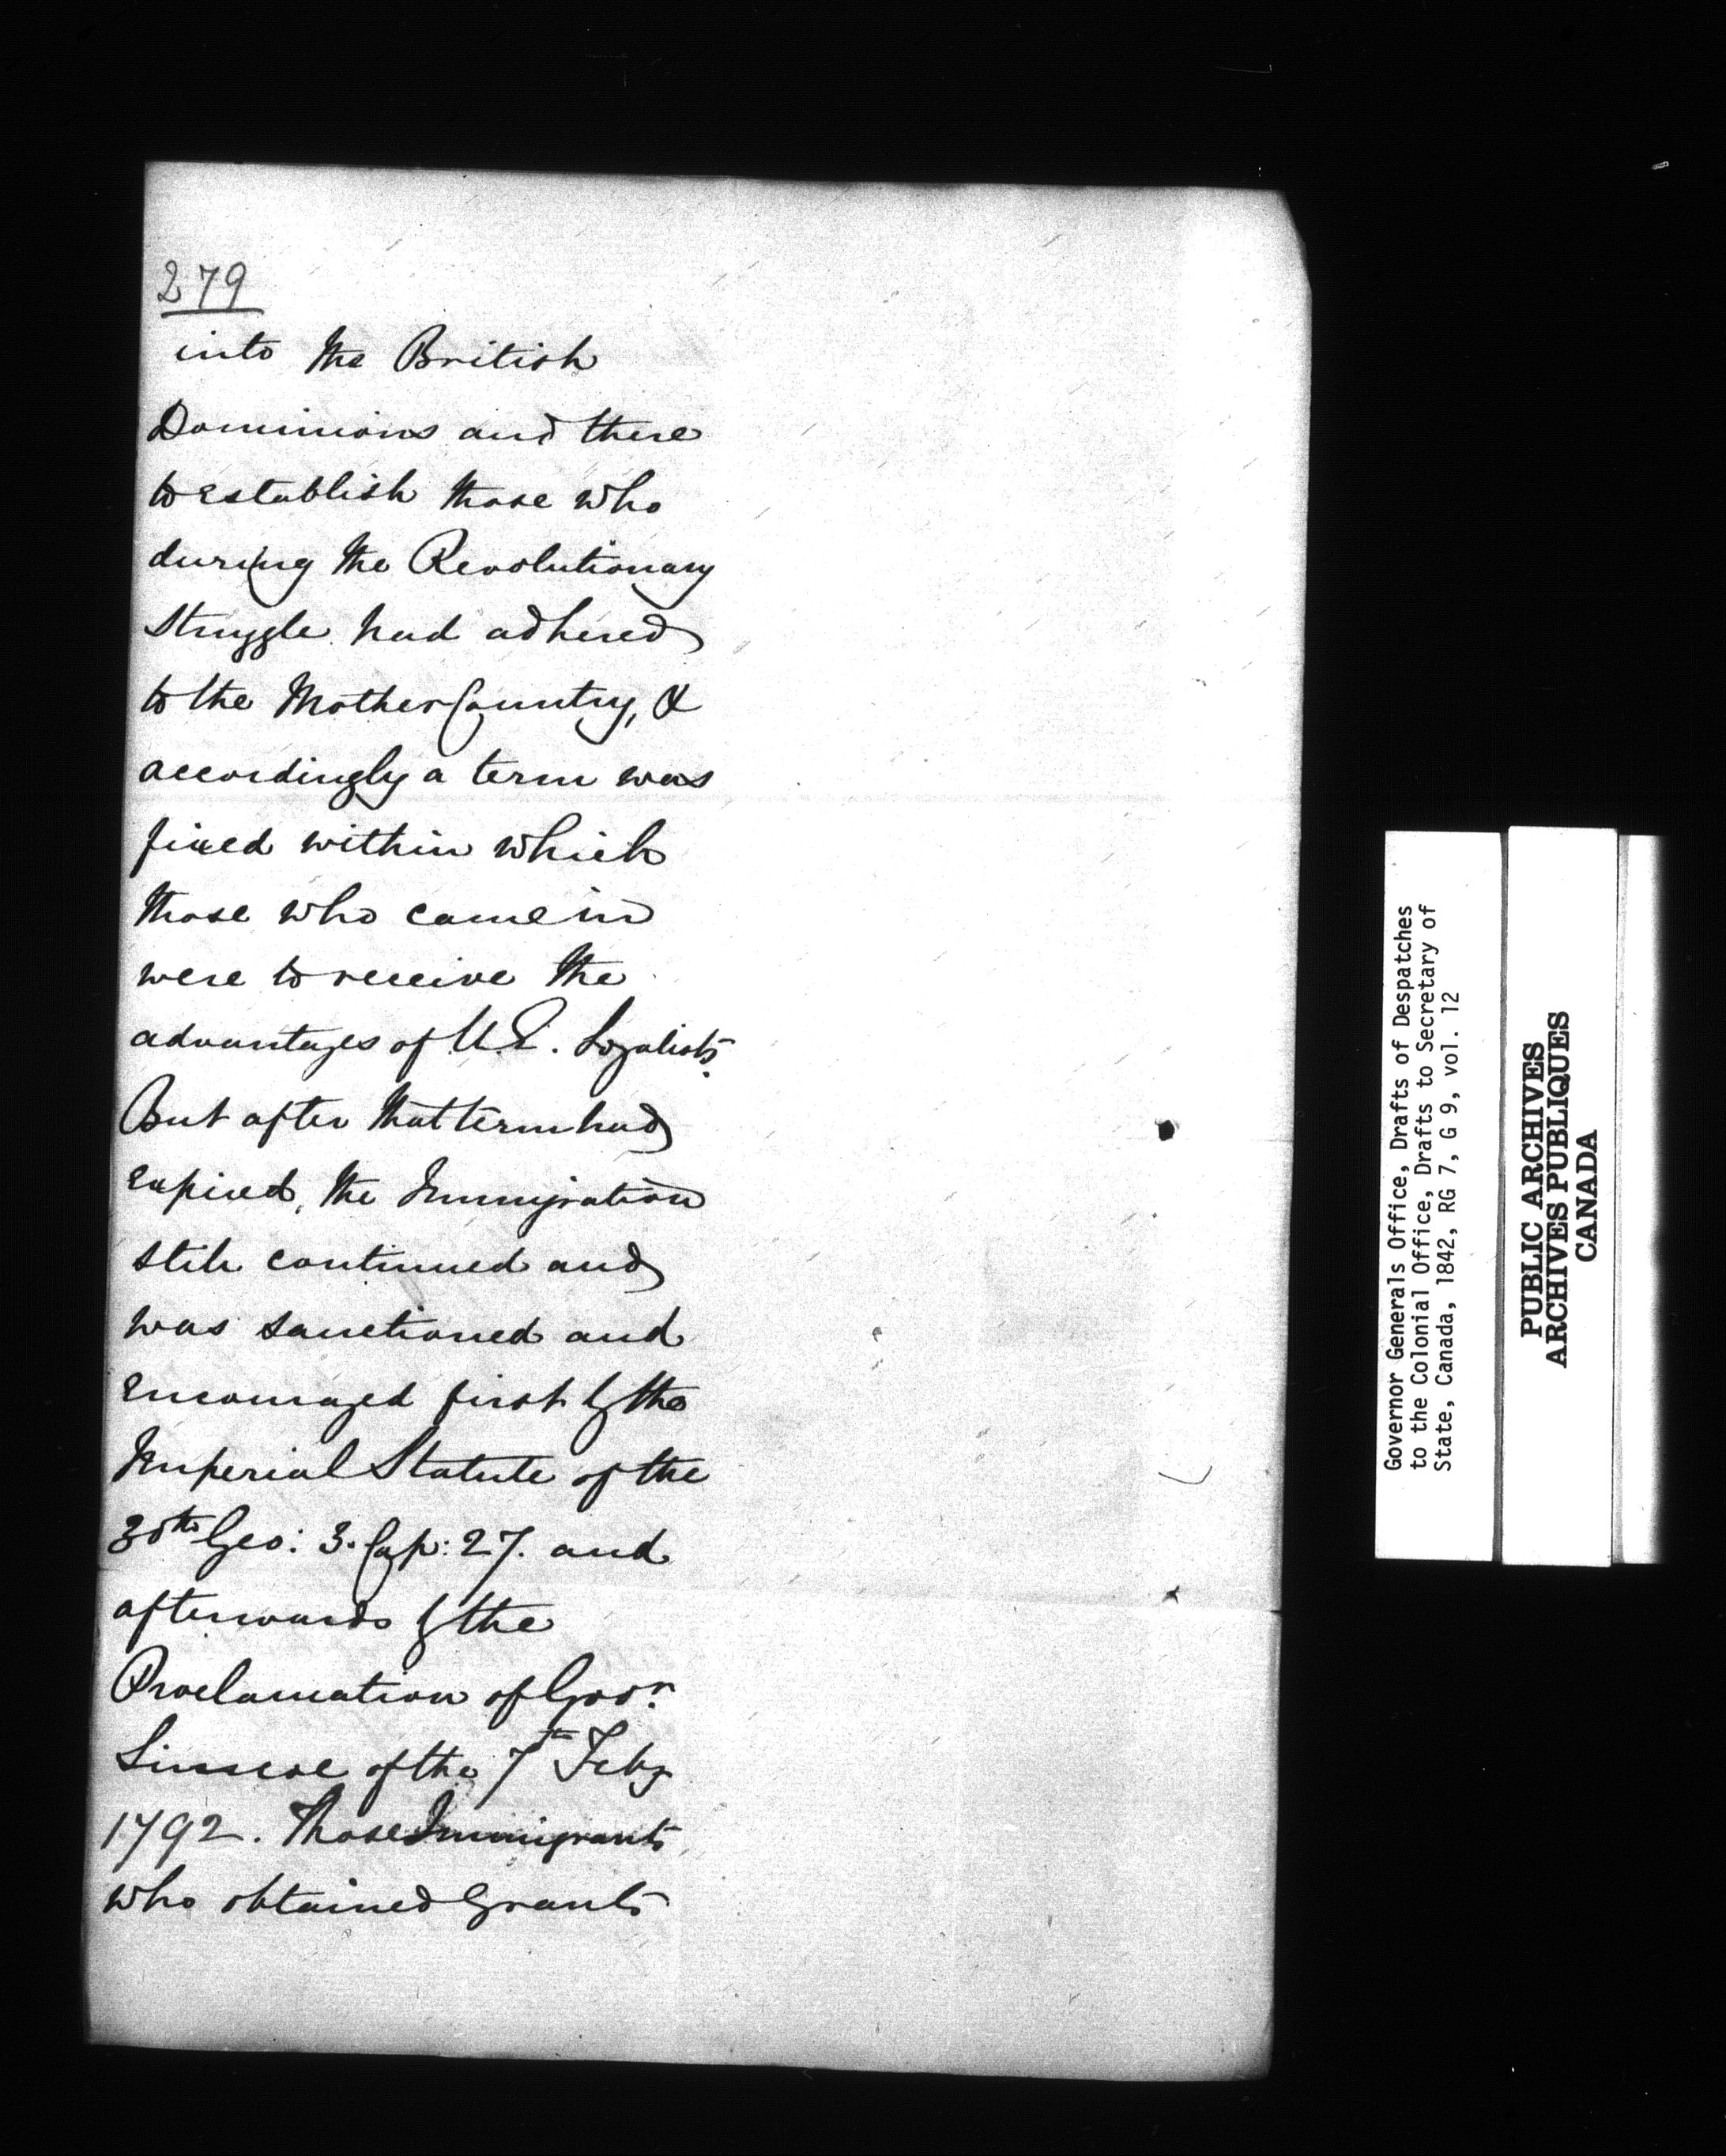 279
into the British
Dominions and there
to establish those who
during the Revolutionary
Struggle had adhered
to the Mother Country, &
accordingly a term was
fixed within which
those who came in
were to receive the
advantages of U.E. Loyalists.
But after that term had
expired, the Immigration
still continued and
was sanctioned and
encouraged first by the
Imperial Statute of the
30th Geo: 3. Cap: 27. and
afterwards by the
Proclamation of Govr.
Simcoe of the 7th Feby
1792. Those Immigrants
who obtained Grants
Governor Generals Office, Drafts of Despatches
to the Colonial Office, Drafts to Secretary of
State, Canada, 1842, RG 7, G 9, vol. 12
PUBLIC ARCHIVES
ARCHIVES PUBLIQUES
CANADA